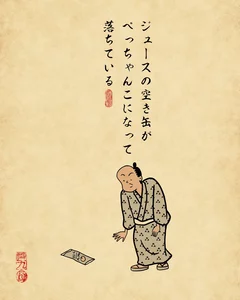 ジュースの空き缶が
ぺっちゃんこになって
落ちている